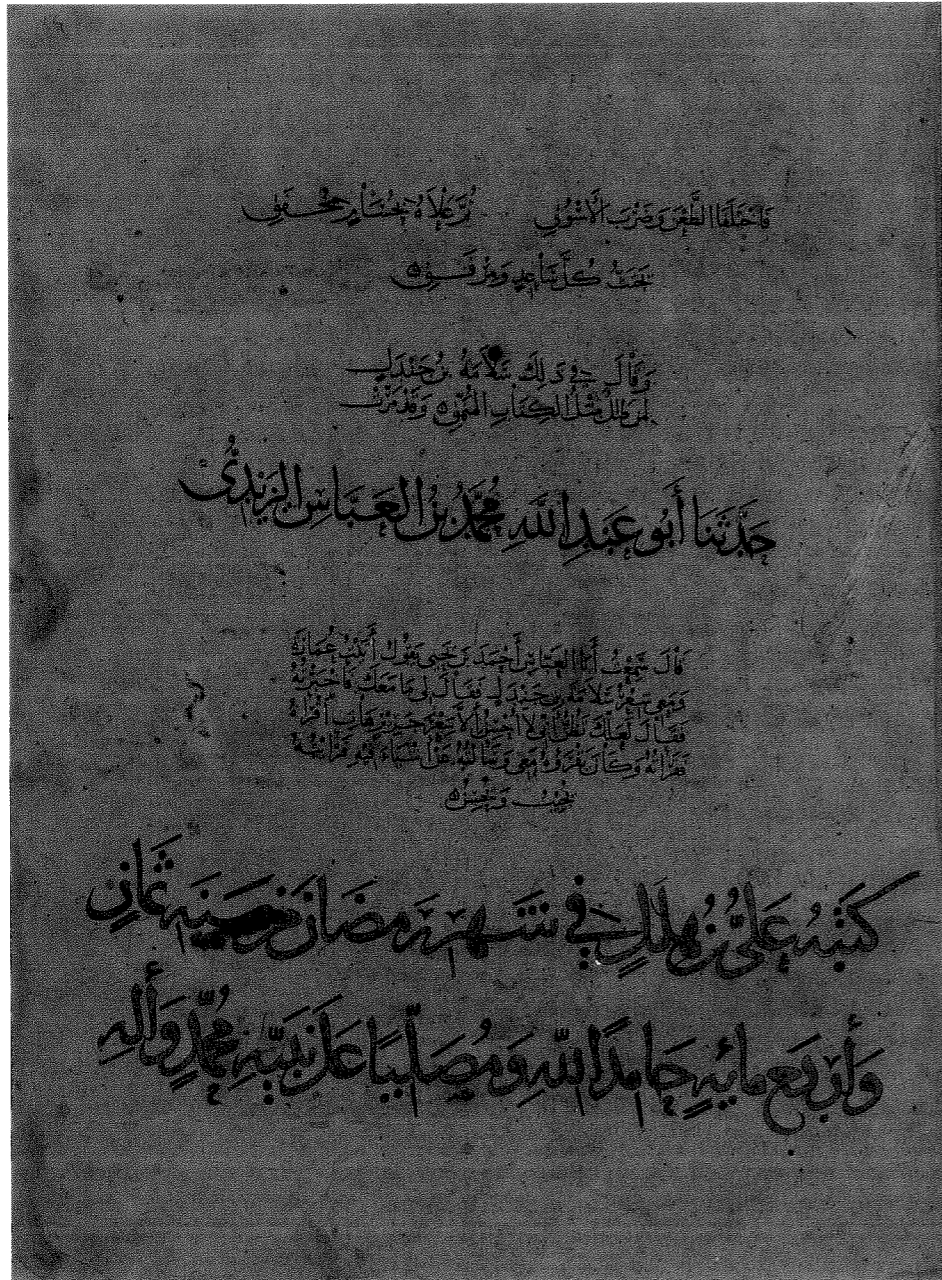 فاختلفا الطعن وضرب الأسوق ثم علاه بحسام مخفق
تحت كل ساعد ومرفق
وقال في ذلك سلامة بن جندل
لمن طلل مثل الكتاب المنمق وقد مرت
حدثنا أبو عبد الله محمد بن العباس اليزيدي
قال سمعت أبا العباس أحمد بن يحيى يقول أتيت عمارة
ومعي شعر سلامة بن جندل فقال لي ما معك فأخبرته
فقال لعلك تظن أني لا أحسن إلا شعر جرير هات اقرأه
فقرأته وكان يقرؤه معي وسألته عن أشياء فيه
يجيب ويحسن
كتبه علي بن هلال في شهر رمضان من سنة ثمان
وأربع مائة حامدا لله ومصليا على نبيه محمد وآله